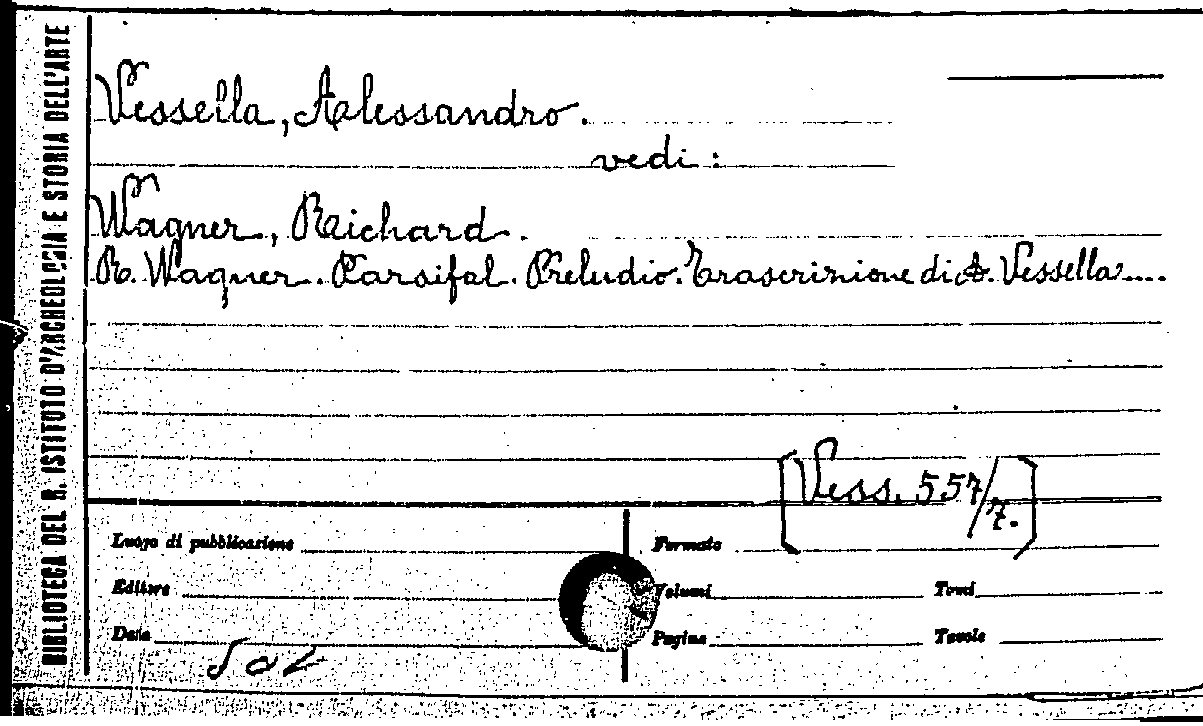 BIBLIOTECA DEL R. ISTITUTO D'ARCHEOLOGIA E STORIA DELL'ARTE
Vessella, Alessandro.
vedi:
Wagner, Richard.
R. Wagner. Parsifal. Preludio. Trascrizione di A. Vessella....
[Vess. 557/7.]
Luogo di pubblicazione
Formato
Editore
Volumi
Tomi
Data
Pagine
Tavole